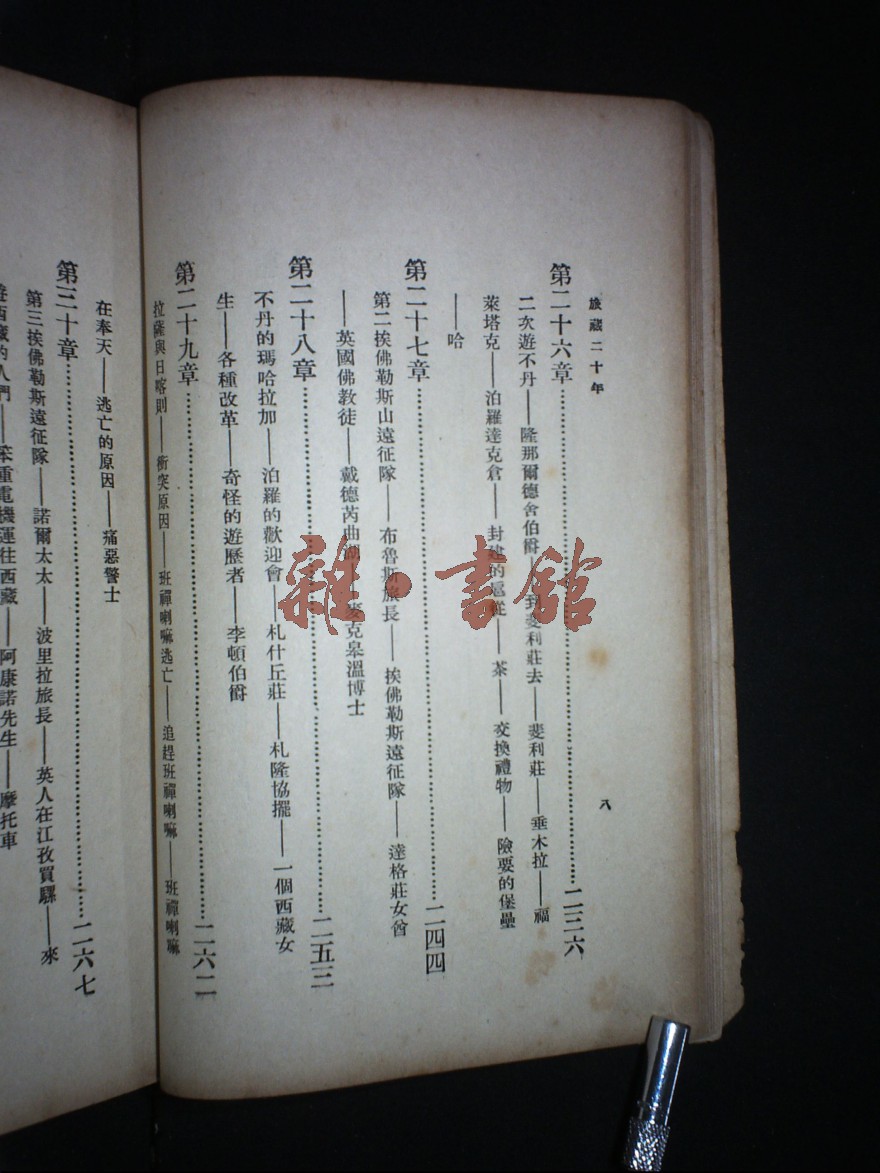 旅藏二十年
八
第二十六章……二三六
二次遊不丹——隆那爾德舍伯爵——到斐利莊去——斐利莊——垂木拉——福
萊塔克——泊羅達克倉——封建的扈從——茶——交換禮物——險要的堡壘
——哈
第二十七章……二四四
第二挨佛勒斯山遠征隊——布魯斯旅長——挨佛勒斯遠征隊——達格莊女酋
——英國佛教徒——戴德芮曲湖——麥克皋溫博士
第二十八章……二五三
不丹的瑪哈拉加——泊羅的歡迎會——札什丘莊——札隆協擺——一個西藏女
生——各種改革——奇怪的遊歷者——李頓伯爵
第二十九章……二六二
拉薩與日喀則——衝突原因——班禪喇嘛逃亡——追趕班禪喇嘛——班禪喇嘛
在奉天——逃亡的原因——痛惡警士
第三十章……二六七
第三挨佛勒斯遠征隊——諾爾太太——波里拉旅長——英人在江孜買騾——來
遊西藏的人們——笨重電機運往西藏——阿康諾先生——摩托車
雜·書館